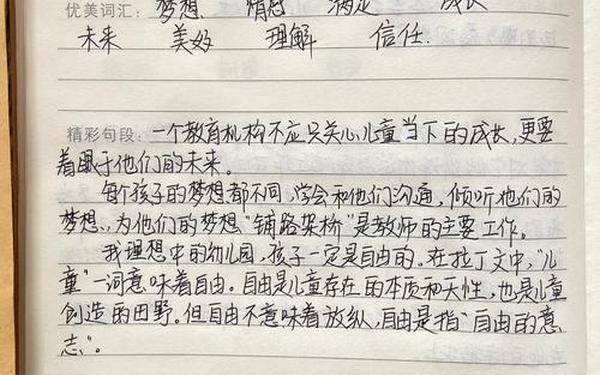 优美词汇: 梦想 情感 满足 成长
未来 美好 理解 信任.
精彩句段: 一个教育机构不应只关心儿童当下的成长,更要
着眼于他们的未来。
每个孩子的梦想都不同,学会和他们沟通,倾听他们的
梦想、为他们的梦想“铺路架桥”是教师的主要工作。
我理想中的幼儿园,孩子一定是自由的。在拉丁文中,“儿
童”一词意味着自由。自由是儿童存在的本质和天性,也是儿童
创造的田野。但自由不意味着放纵,自由是指“自由的意
志”。